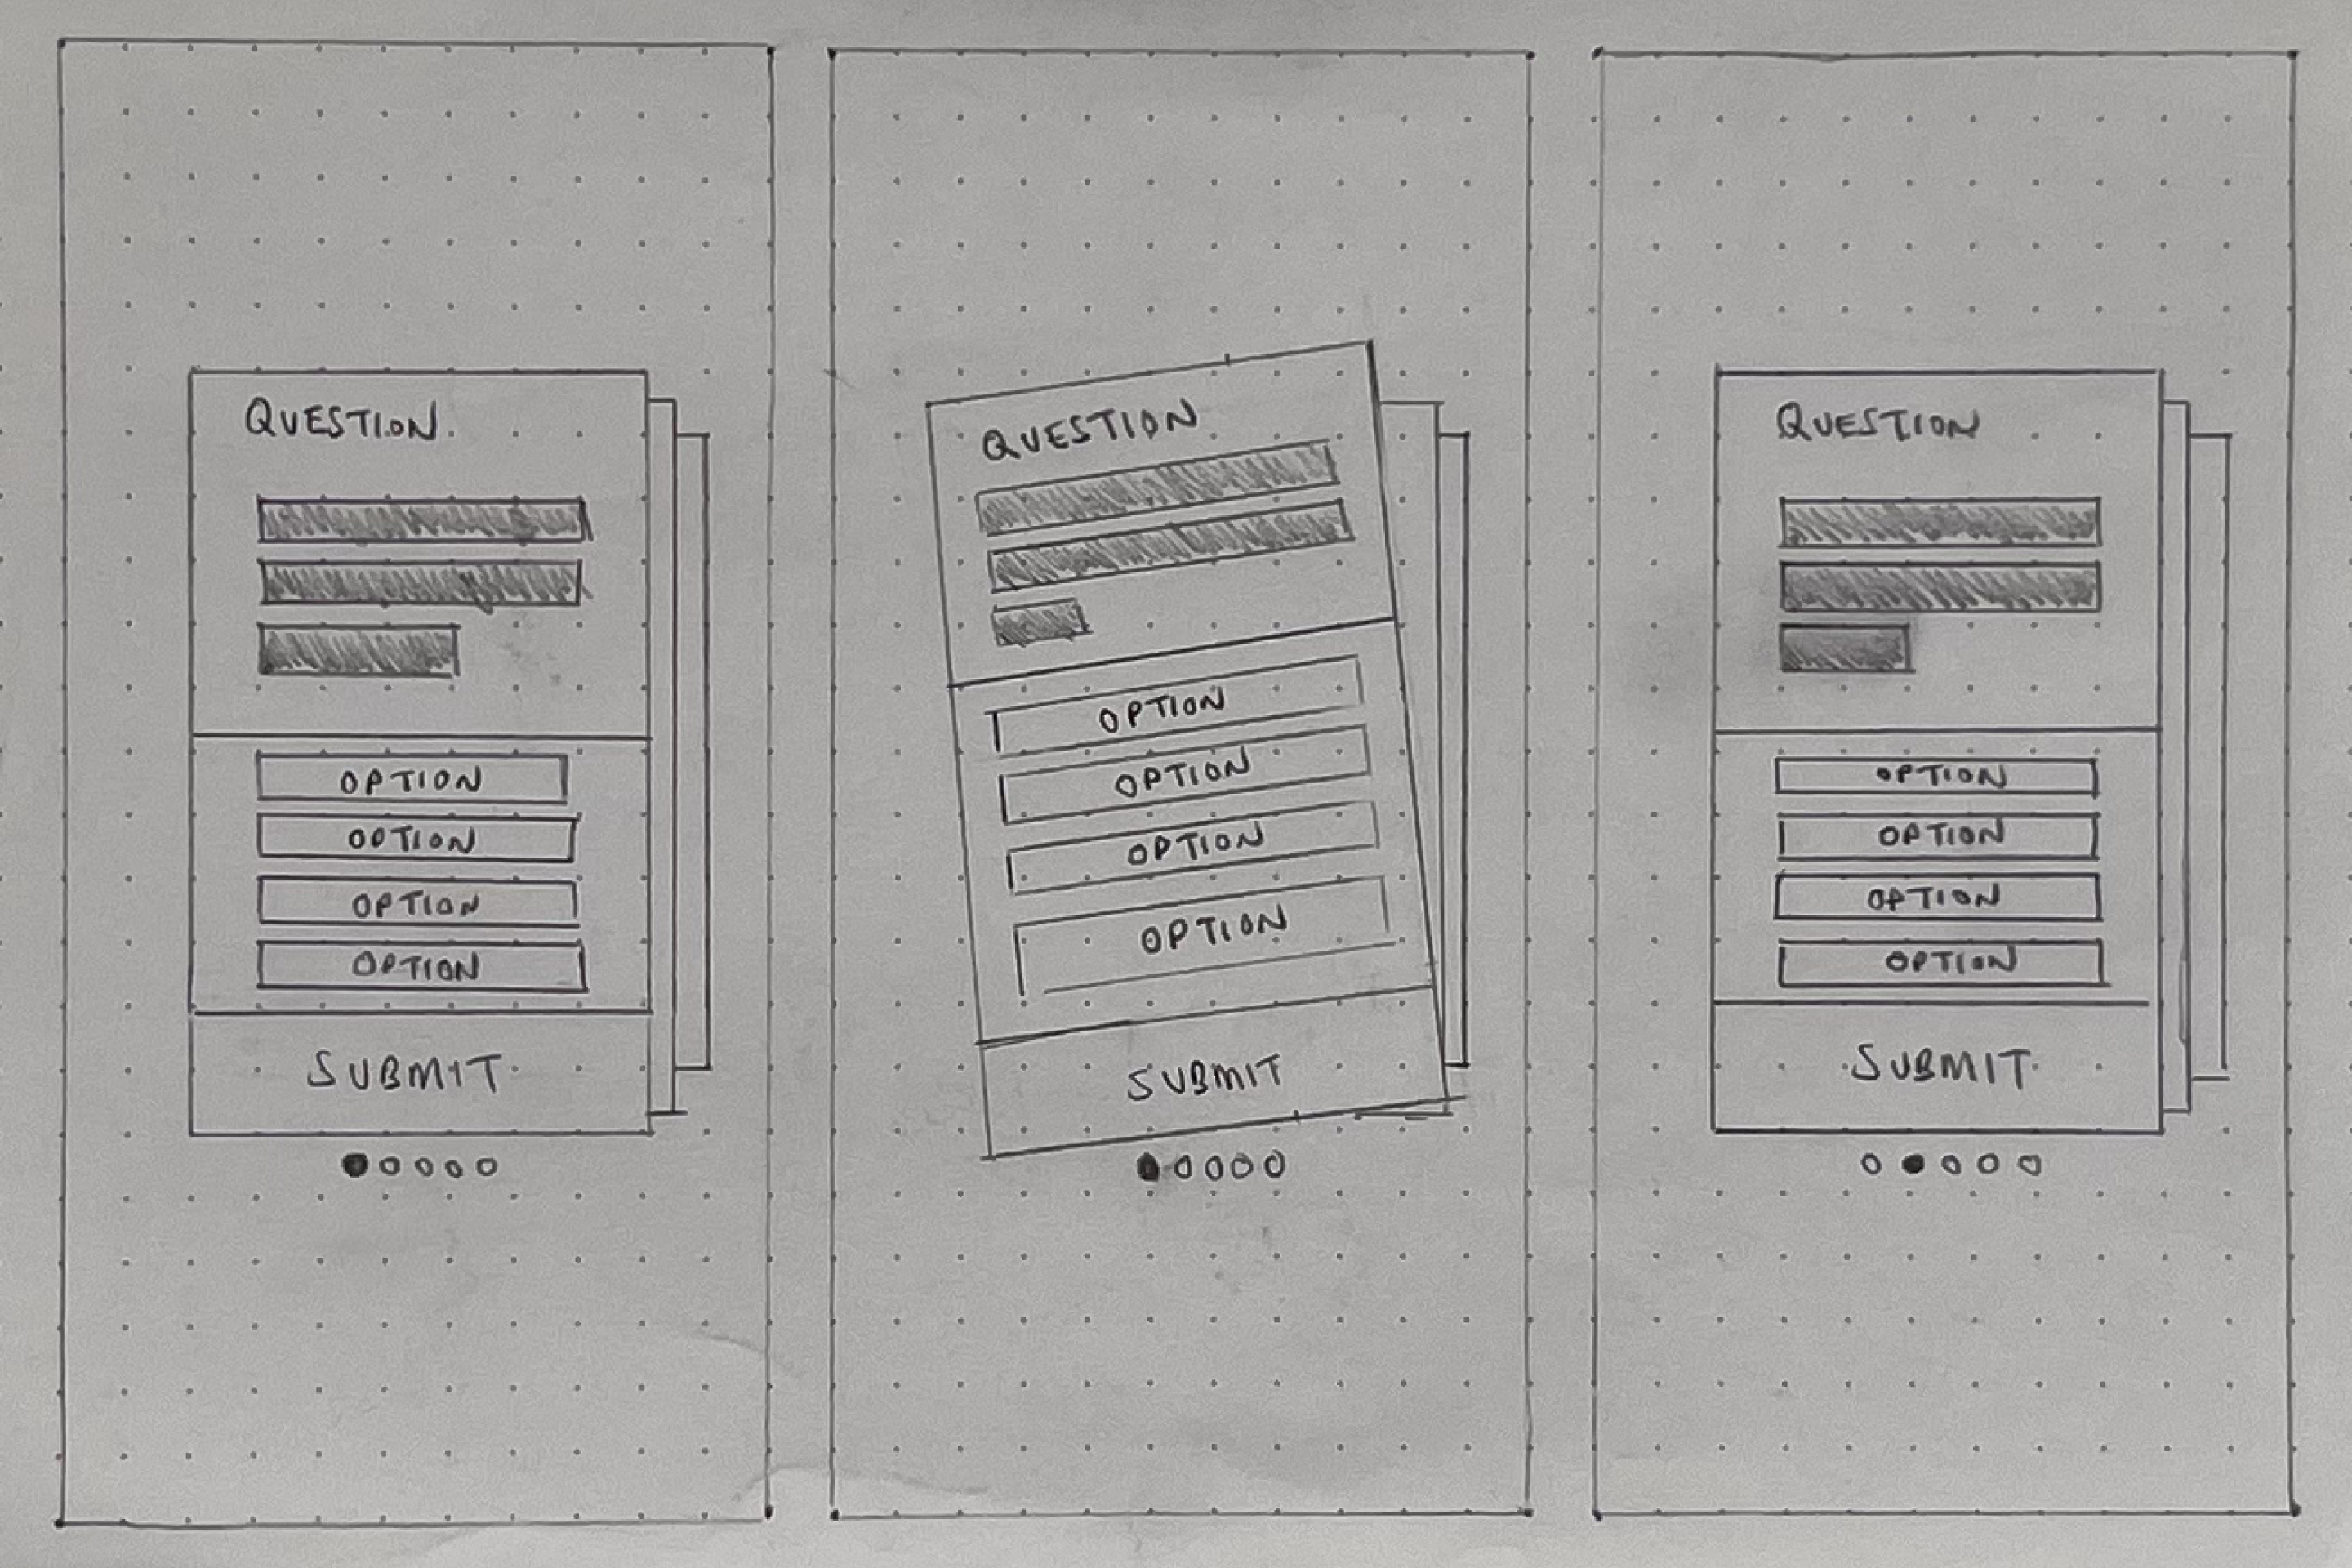 QUESTION
OPTION
OPTION
OPTION
OPTION
SUBMIT
QUESTION
OPTION
OPTION
OPTION
OPTION
SUBMIT
QUESTION
OPTION
OPTION
OPTION
OPTION
SUBMIT